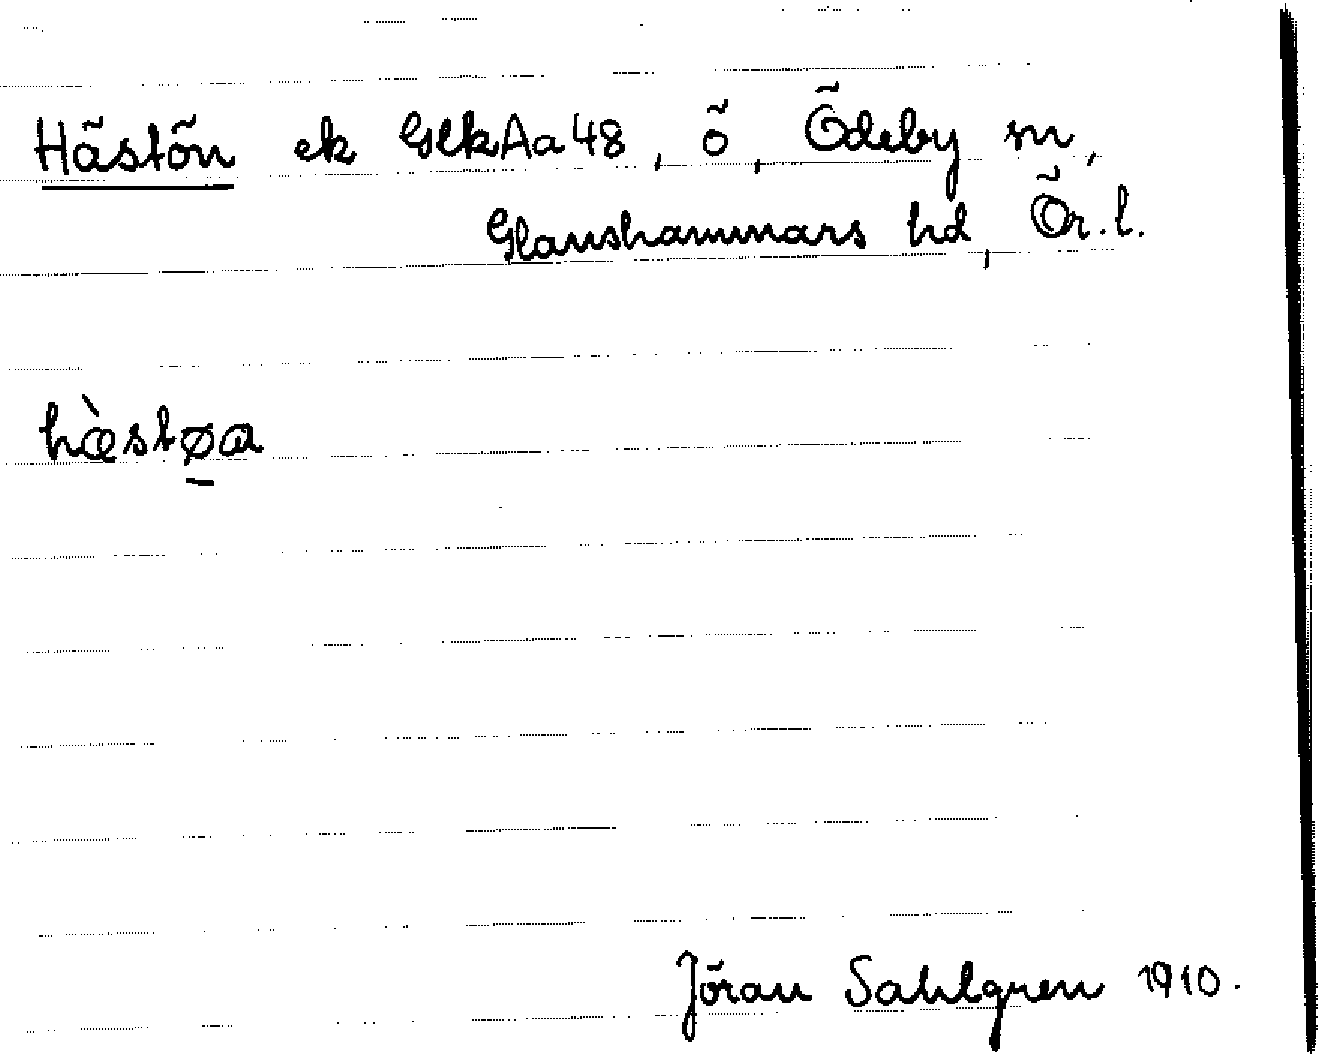 Hästön ek GlkAa48, ö, Ödeby sn,
Glanshammars hd, Ör.l.
hæ̀stø̱a
Jöran Sahlgren 1910.